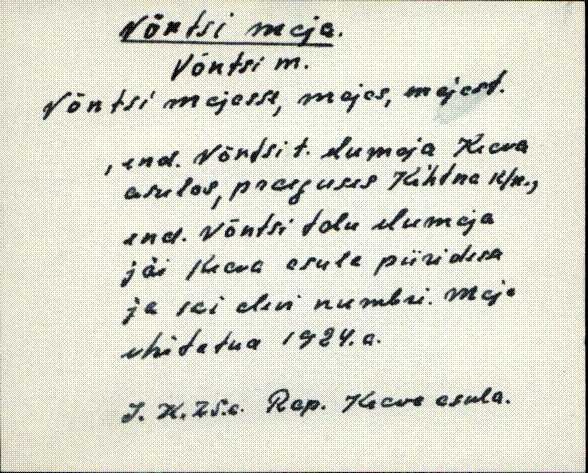 Võntsi maja.
Võntsi m.
Võntsi majasse, majas, majast.
, end. Võntsi t. elumaja Keava
asulas, praeguses Kehtna k/n.,
end. Võntsi talu elumaja
jäi Keava asula piiridesse
ja sai elevi numbri. Maja
ehitatud 1924. a.
J. K. 25. a. Rap. Keava asula.